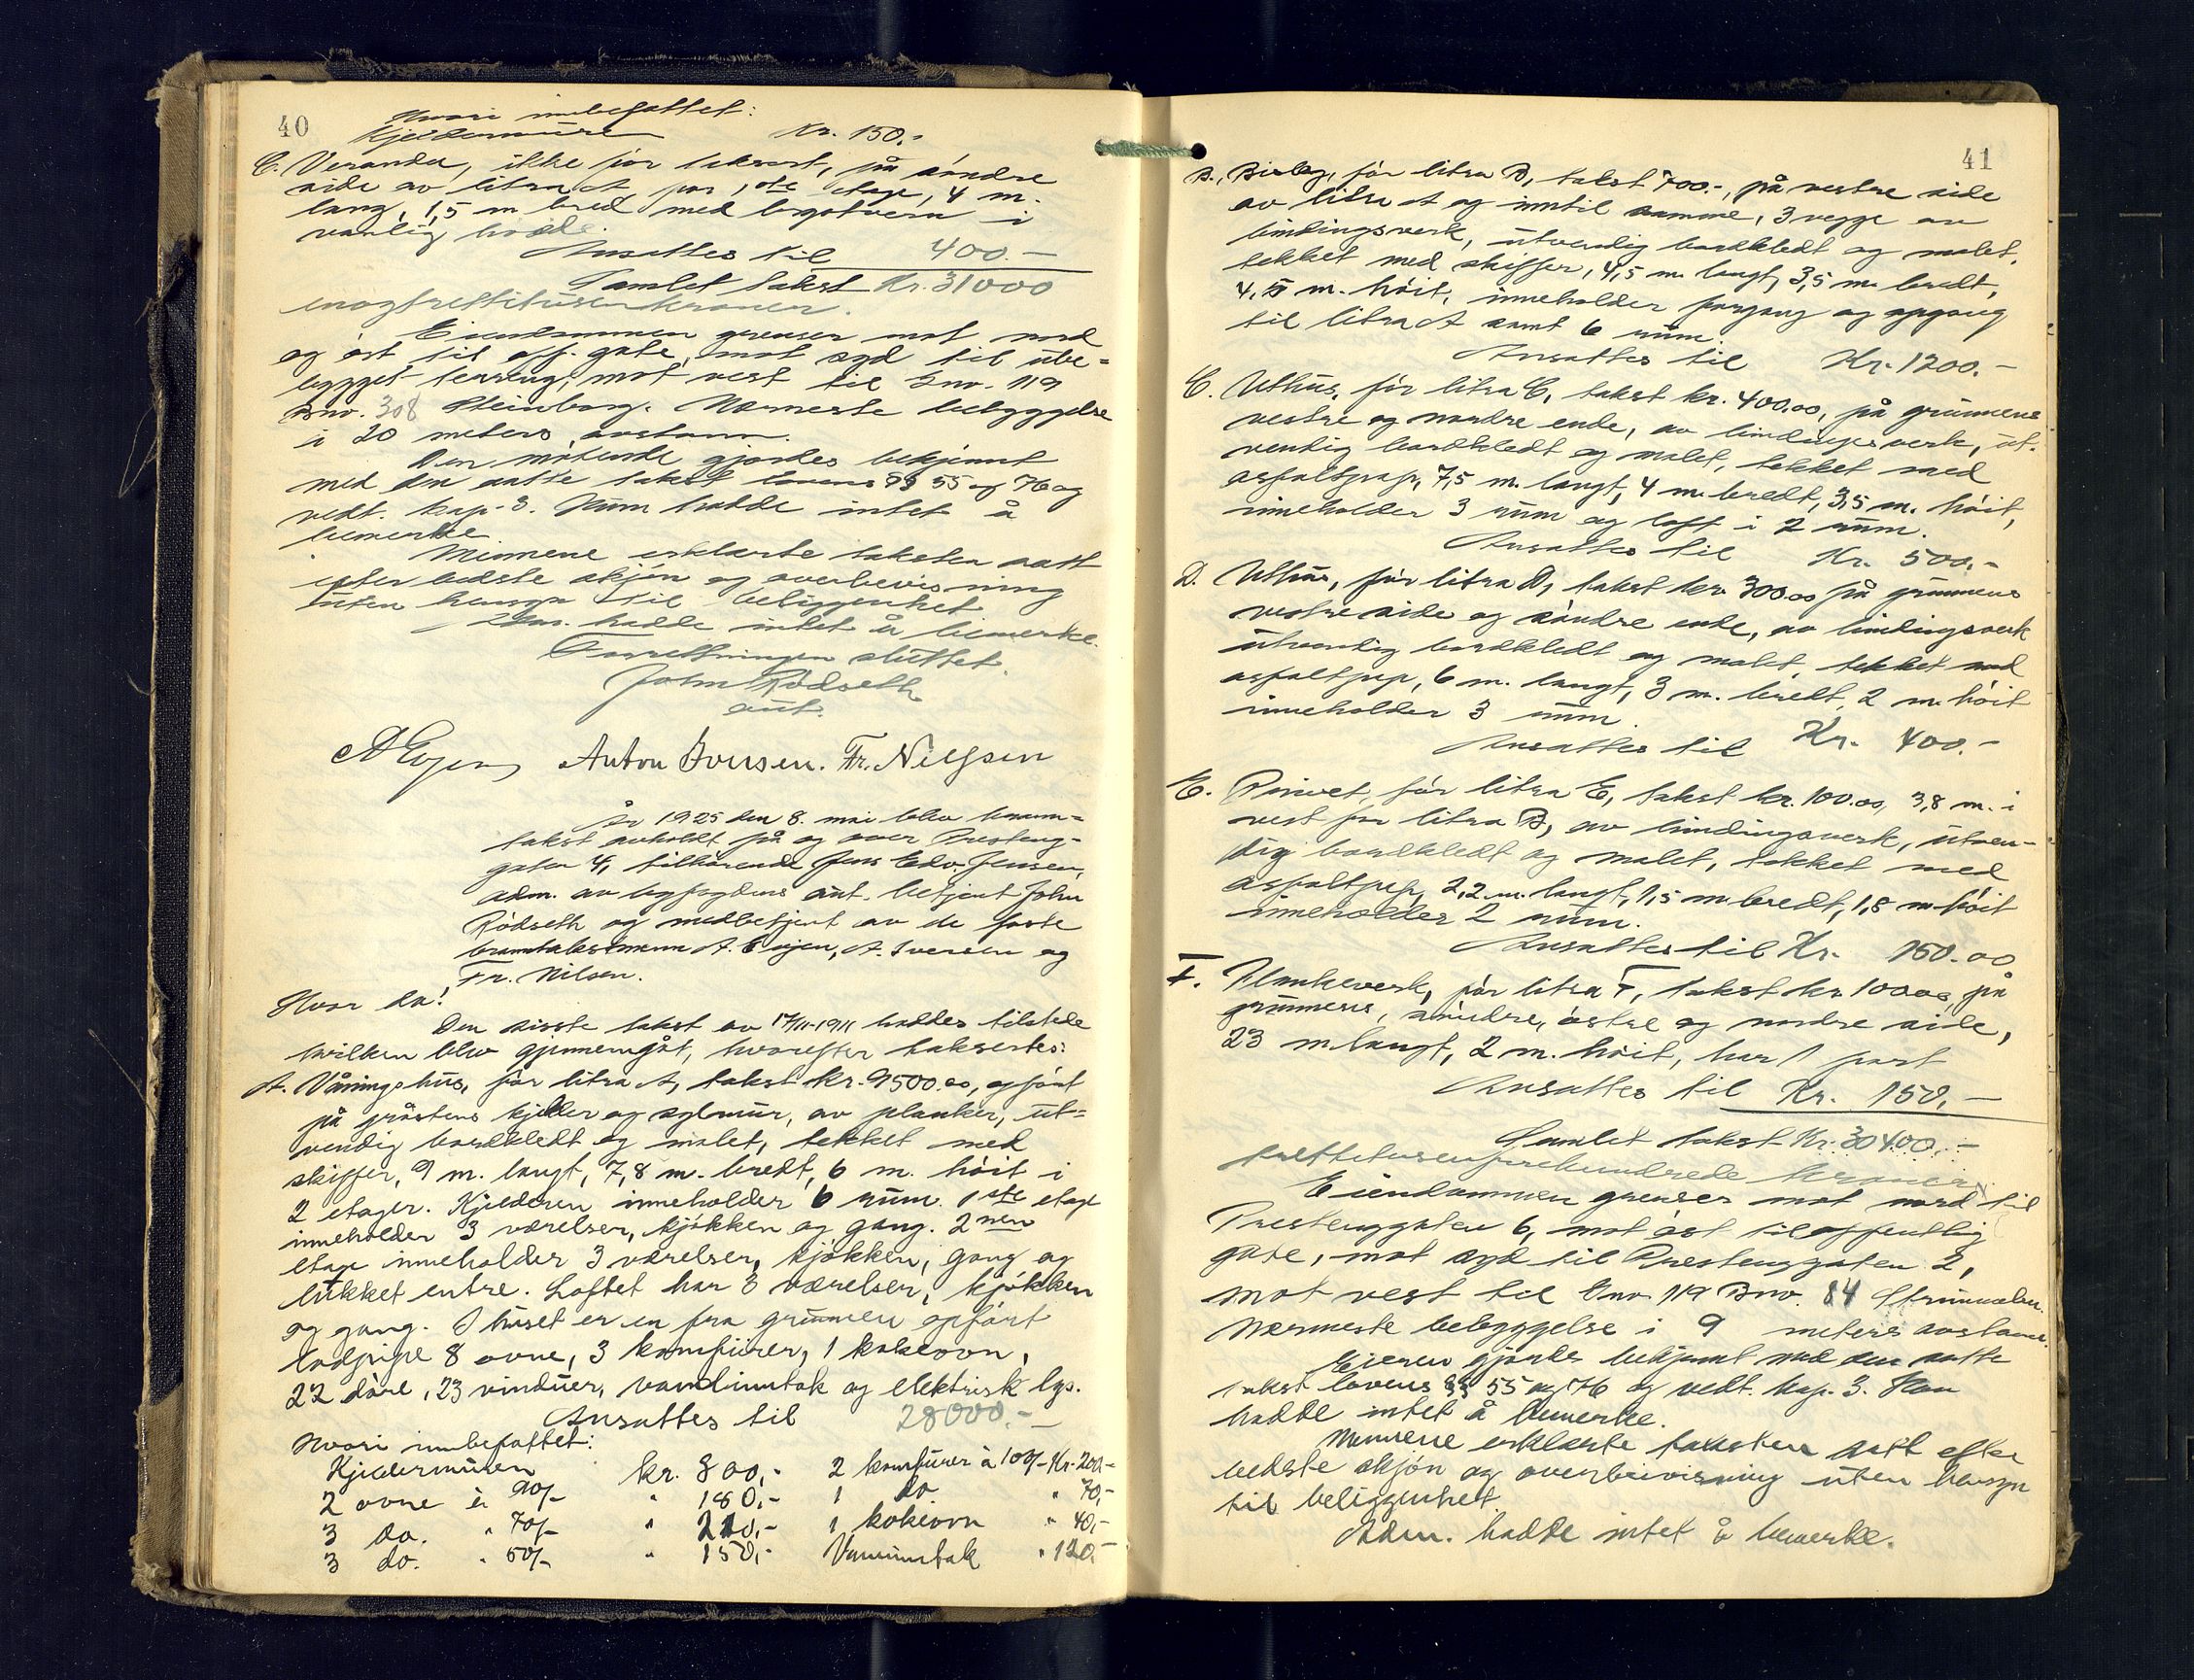 40
Hvori innbefattet:
Kjeldermuren Kr. 150.-
C. Veranda, ikke før taksert, på søndre
side av litra A, for 1ste etage, 4 m.
lang, 1,5 m bred med brystvern i
vanlig høide.
Ansattes til 400.-
Samlet takst Kr. 31000
enogtrettitusen kroner.
Eiendommen grenser mot nord
og øst til off. gate, mot syd til ube-
bygget terreng, mot vest til Gnr. 119
Bnr. 308 Steinborg. Nærmeste bebyggelse
i 20 meters avstann.
Den møtende gjordes bekjennt
med den satte takst lovens §§ 55 og 76 og
vedt. kap. 3. Hun hadde intet å
bemerke
Mennene erklærte taksten satt
efter bedste skjøn og overbevisning
uten hensyn til beliggenhet
Adm. hadde intet å bemerke.
Forretningen sluttet.
John Rødseth
aut.
A Evjen Anton Iversen. Fr. Nielsen
År 1925 den 8. mai blev brann-
takst avholdt på og over Presteng-
gaten 4, tilhørende Jens Edv. Jensen,
adm. av byfogdens aut. betjent John
Rødseth og medbetjent av de faste
branntakstmenn A. Evjen, A. Iversen og
Fr. Nilsen.
Hvor da!
Den sisste takst av 17/11-1911 haddes tilstede
hvilken blev gjennemgåt, hvorefter taksertes:
A. Våningshus, før litra A, takst kr. 9500.00, opført
på gråstens kjelder og sylmur, av planker, ut-
vendig bordkledt og malet, tekket med
skiffer, 9 m. langt, 7,8 m. bredt, 6 m. høit i
2 etager. Kjelderen inneholder 6 rum. 1ste etage
inneholder 3 værelser, kjøkken og gang. 2nen
etage inneholder 3 værelser, kjøkken, gang og
lukket entre. Loftet har 3 værelser, kjøkken
og gang. I huset er en fra grunnen opført
lodpipe 8 ovne, 3 komfürer, 1 kokeovn,
22 døre, 23 vinduer, vandinntak og elektrisk lys.
Ansattes til 28000.-
Hvori innbefattet:
Kjeldermuren kr. 800,- 2 komfürer à 100/- Kr. 200,-
2 ovne à 90/- " 180,- 1 do " 70,-
3 do. " 70/- " 210,- 1 kokeovn " 40,-
3 do. " 50/- " 150,- Vanninntak " 120,-
41
B. Bislag, før litra B, takst 700.-, på vestre side
av litra A og inntil samme, 3 vegge av
bindingsverk, utvendig bordkledt og malet,
tekket med skiffer, 4,5 m. langt, 3,5 m. bredt,
4,5 m. høit, inneholder forgang og opgang
til litra A samt 6 rum.
Ansattes til Kr. 1200.-
C. Uthus, før litra C, takst kr. 400,00, på grunnens
vestre og nordre ende, av bindingsverk, ut-
vendig bordkledt og malet, tekket med
asfaltpap, 7,5 m. langt, 4 m. bredt, 3,5 m. høit,
inneholder 3 rum og loft i 2 rum.
Ansattes til Kr. 500,-
D. Uthus, før litra D, takst kr. 300.00 på grunnens
vestre side og søndre ende, av bindingsverk
utvendig bordkledt og malet, tekket med
asfaltpap, 6 m. langt, 3 m. bredt, 2 m. høit
inneholder 3 rum.
Ansattes til Kr. 400.-
E. Privet, før litra E, takst kr. 100.00, 3,8 m. i
vest for litra B, av bindingsverk, utven-
dig bordkledt og malet, tekket med
asfaltpap, 2,2 m. langt, 1,5 m bredt, 1,8 m høit
inneholder 2 rum.
Ansattes til Kr. 150.00
F. Plankeverk, før litra F, takst kr. 100.00, på
grunnens, søndre, østre og nordre side,
23 m langt, 2 m. høit, har 1 port
Ansattes til Kr. 150,-
Samlet takst Kr. 30400,-
trettitusenfirehundrede kroner.
Eiendommen grenser mot nord til
Prestenggaten 6, mot øst til offentlig
gate, mot syd til Prestenggaten 2,
mot vest til Gnr. 119 Bnr. 84
Nærmeste bebyggelse i 9 meters avstann.
Eieren gjordes bekjennt med den satte
takst lovens §§ 55 og 76 og vedt. kap. 3. Han
hadde intet å bemerke.
Mennene erklærte taksten satt efter
bedste skjøn og overbevisning uten hensyn
til beliggenhet.
Adm. hadde intet å bemerke.